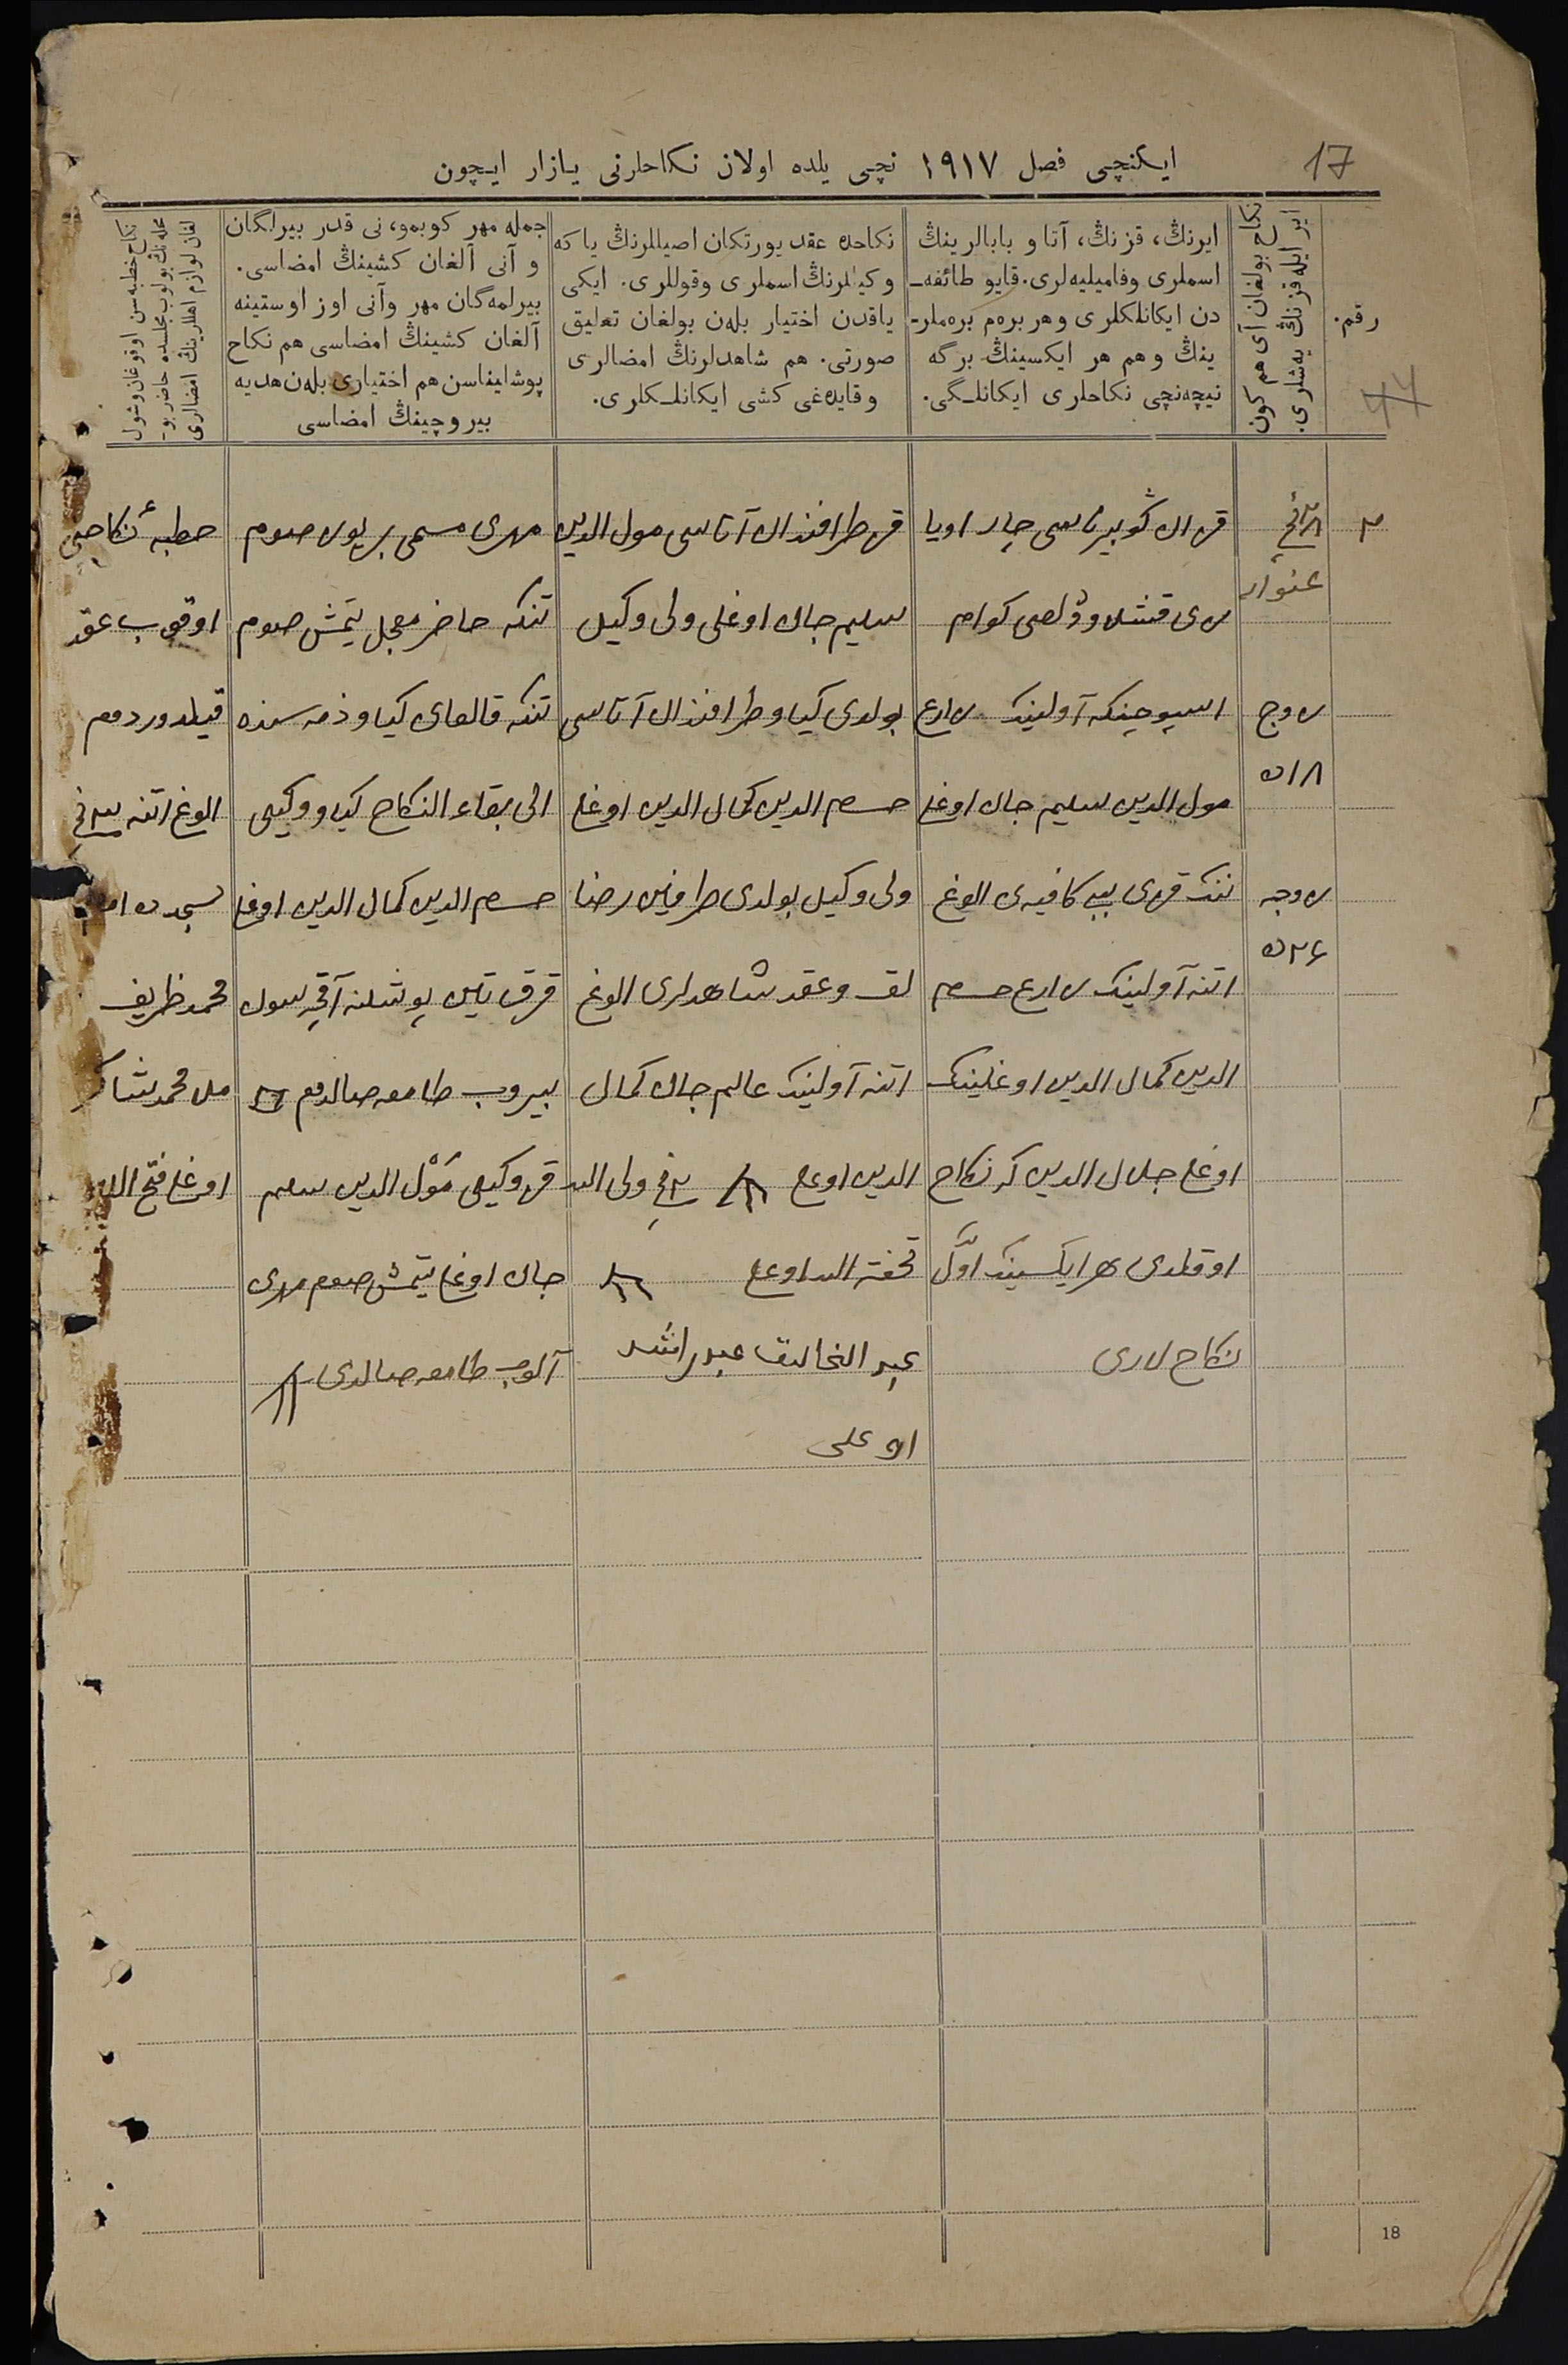 17
ایکنچی فصل ۱۹۱۷ نچی یلده اولان نکاحلرنی یازار ایچون
رقم.
44
نکاح بولغان آی هم کون
ایر ایله قزنڭ یه‌شلری.
ایرنڭ، قزنڭ، آتا و بابالرینڭ
اسملری وفامیلیه‌لری. قایو طائفه‌ـ
دن ایکانلکلری وهر بره‌م بره‌ملرـ
ینڭ وهم هر ایکسینڭ برگه
نیچه‌نچی نکاحلری ایکانلـگی.
نکاحده عقد یورتکان اصیللرنڭ یا که
وکیللرنڭ اسملری وقوللری. ایکی
یاقدن اختیار بله‌ن بولغان تعلیق
صورتی. هم شاهدلرنڭ امضالری
وقایده‌غی کشی ایکانلـکلری.
جمله مهر کوبمو، نی قدر بیرلگان
و آنی آلغان کشینڭ امضاسی.
بیرلمه‌گان مهر وآنی اوز اوستینه
آلغان کشینڭ امضاسی هم نکاح
پوشلیناسن هم اختیاری بله‌ن هدیه
بیروچینڭ امضاسی
نکاح خطبه‌سن اوقوغان وشول
محله‌نڭ بولوب مجلسده حاضر بوـ
لغان لوازم اهللرینڭ امضالری
۳
قزان گوبیرناسی چار اویا
سی قشلاو ولصی کوام
اسپوچینکه آولینڭ زارع
مول الدین سلیم جان اوغلی
ننڭ قزی بیبی کافیه‌نی الوغ
اتنه آولینڭ زارع حسام
الدین کمال الدین اوغلینڭ
اوغلی جلال الدین که نکاح
اوقلدی هر ایکسینڭ اوّل
نکاح لاری
غنوار
زوج
۱۸ ده
زوجه
۲۶ ده
قز طرافندان آتاسی مول الدین
سلیم جان اوغلی ولی وکیل
بولدی کیاو طرافندان آتاسی
حسام الدین کمال الدین اوغلی
ولی وکیل بولدی طرفین رضا
لق و عقد شاهدلری الوغ
اتنه آولینڭ عالم جان کمال
الدین اوغلی ولی الله
تحفة الله اوغلی
عبد الخالق عبدراشد
اوغلی
مهری مسمی بر یوز صوم
تنکه حاضر معجل یتمش صوم
تنکه قالغان کیاو ذمه سنده
الی بقاء النکاح کیاو وکیلی
حسام الدین کمال الدین اوغلی
قرق تین پوشلنه آقچه سون
بیروب طامغه صالدم
قز وکیلی مول الدین سلیم
جان اوغلی یتمش صوم مهرنی
آلوب طامغه صالدی
خطبهٔ نکاحنی
اوقوب عقد
قیلدوردم
الوغ اتنه
مسجدنده امام
محمد ظریف
ملا محمد شاکر
اوغلی فتح الله
18